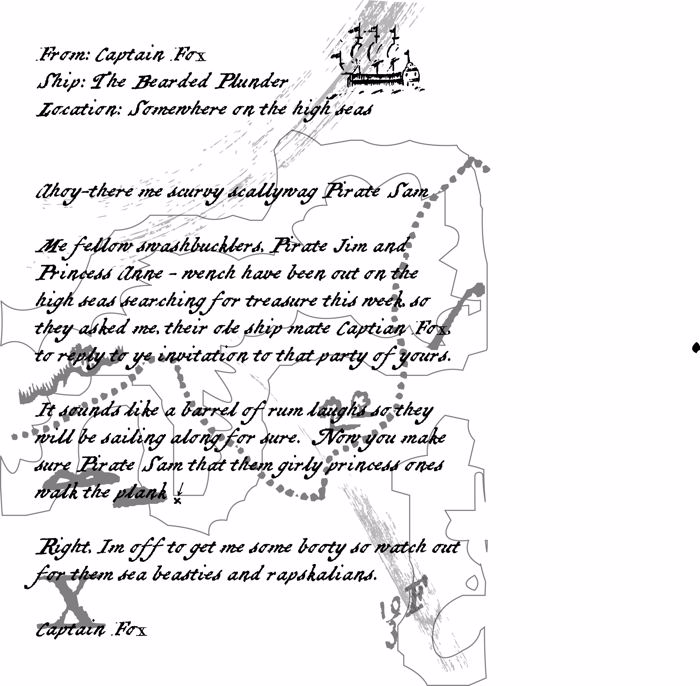 From: Captain Fox
Ship: The Bearded Plunder
Location: Somewhere on the high seas
Ahoy-there me scurvy scallywag Pirate Sam
Me fellow swashbucklers, Pirate Jim and
Princess Anne - wench have been out on the
high seas searching for treasure this week, so
they asked me, their ole ship mate Captian Fox,
to reply to ye invitation to that party of yours.
It sounds like a barrel of rum laughs so they
will be sailing along for sure. Now you make
sure Pirate Sam that them girly princess ones
walk the plank
Right, Im off to get me some booty so watch out
for them sea beasties and rapskalians.
X
Captain Fox